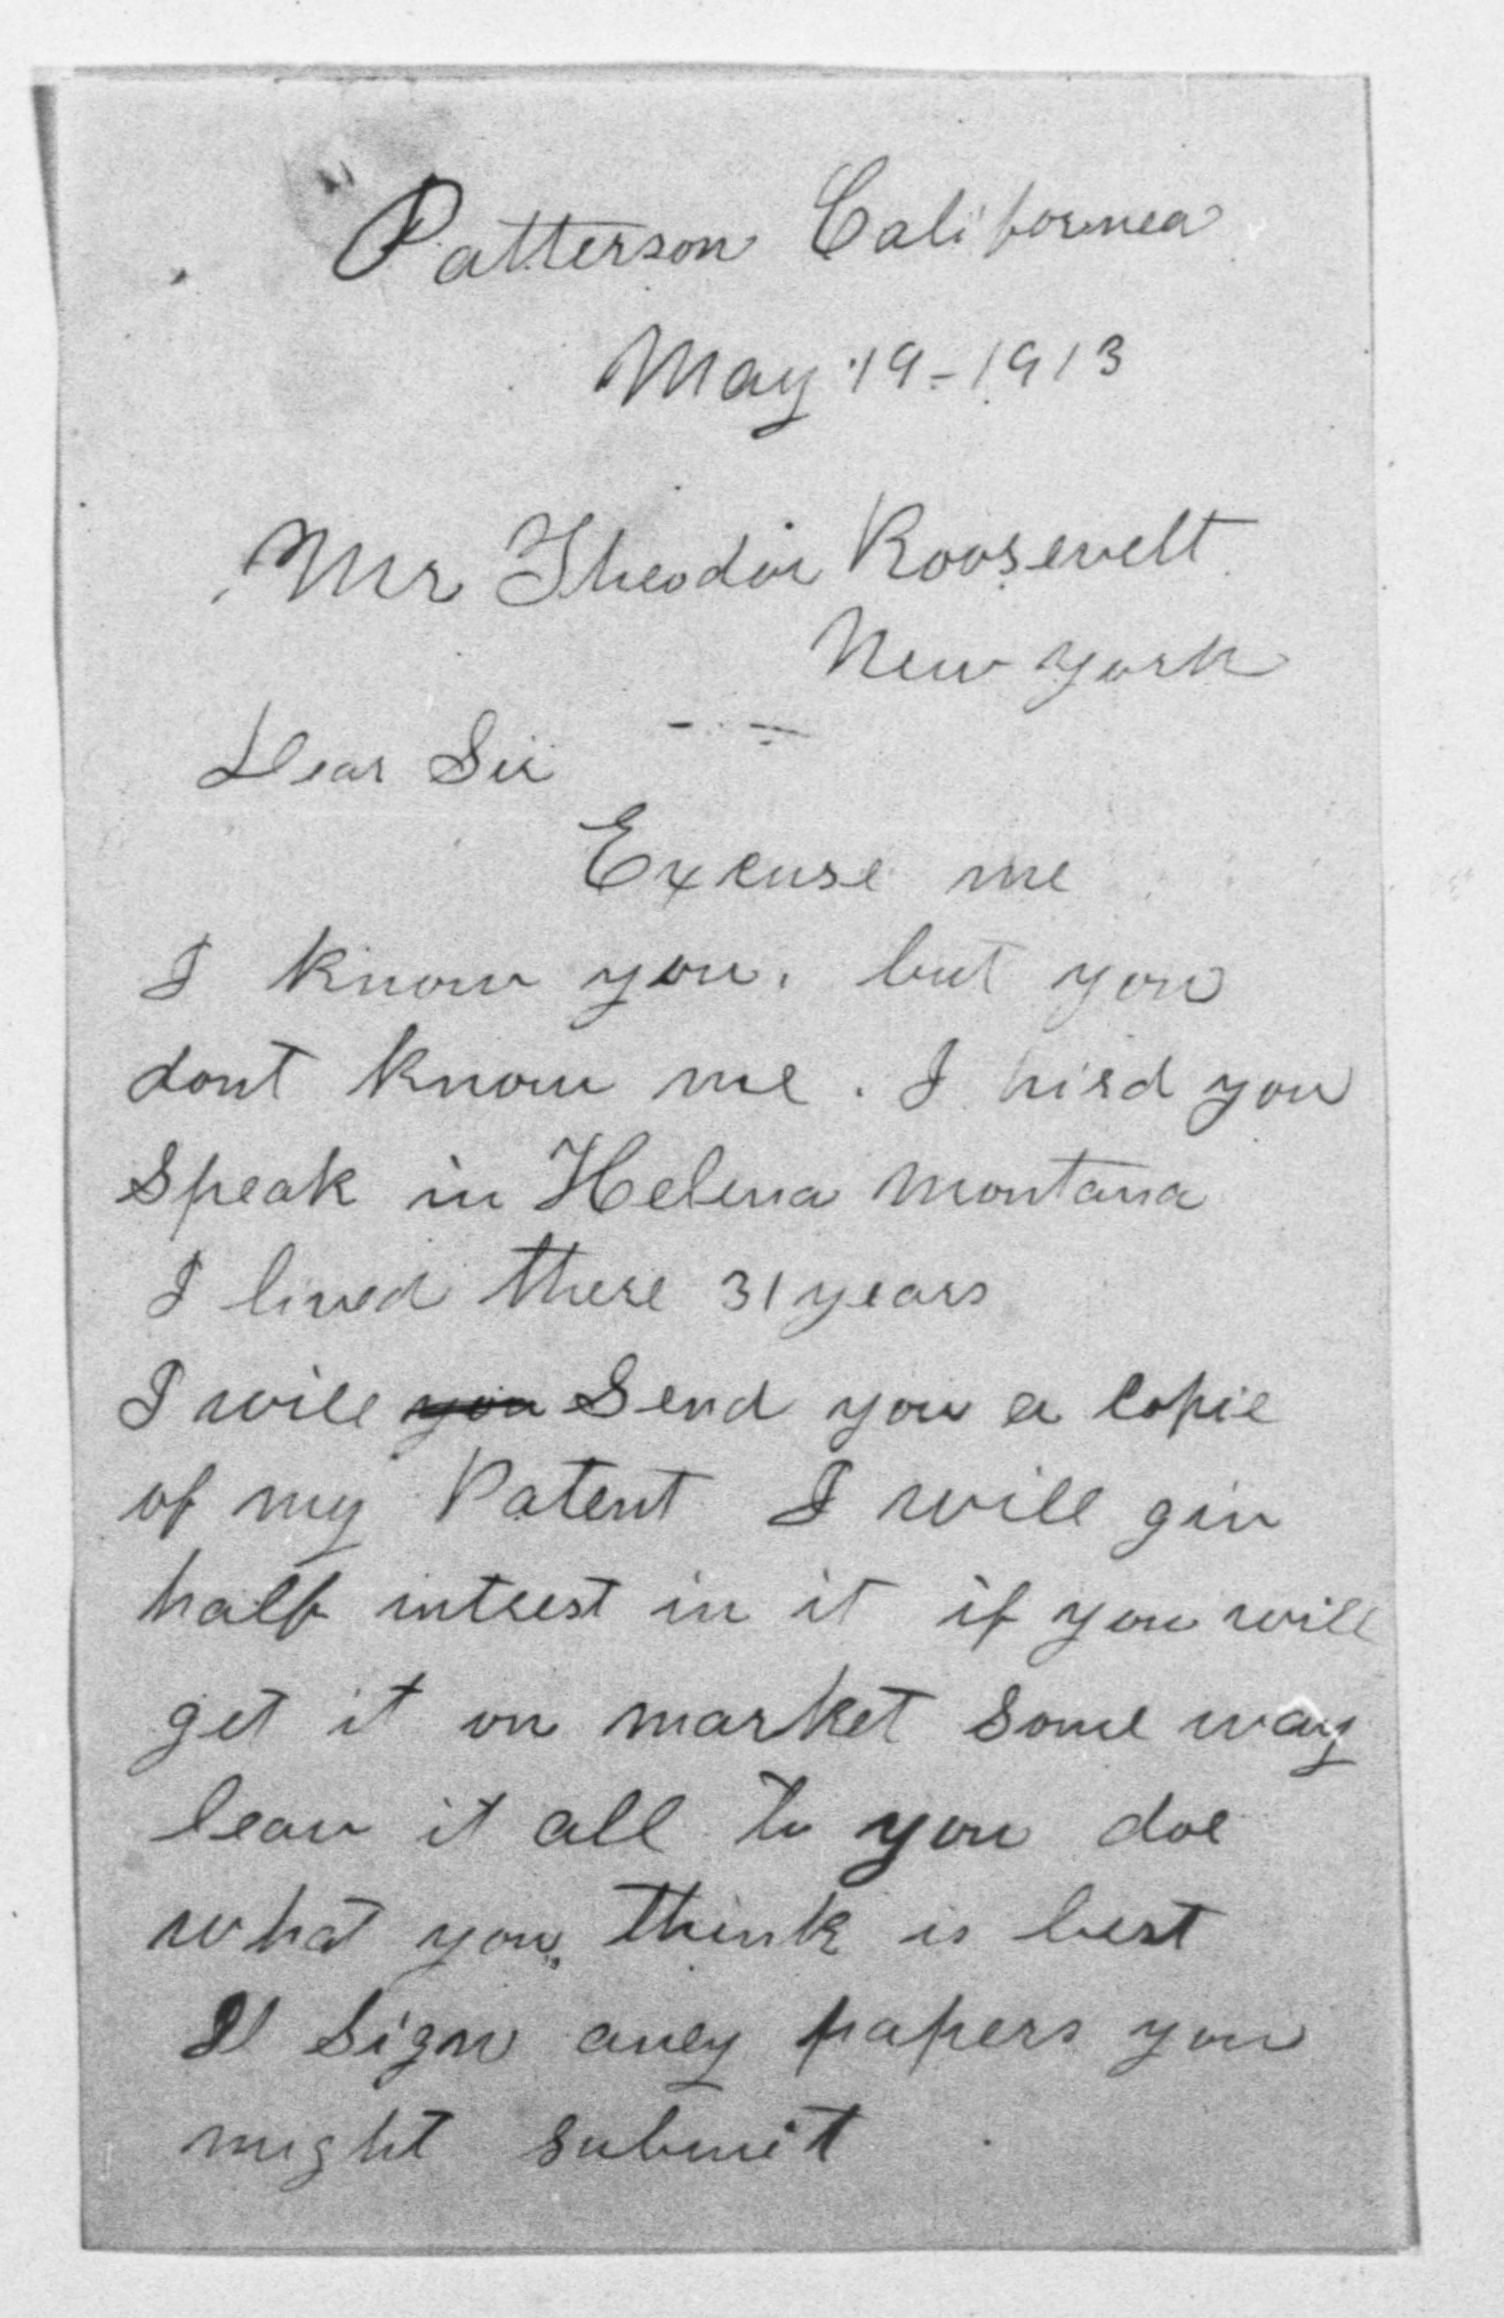 Patterson Californea
May 19-1913
Mr Theodor Roosevelt
New york
Dear Sir
Excuse me
I know you, but you
dont know me. I hird you
Speak in Helena Montana
I lived there 31 years
I will you Send you a copie
of my Patent I will giv
half intrest in it if you will
get it on market Some way
leav it all to you doe
what you think is best
Il Sign aney papers you
might submit